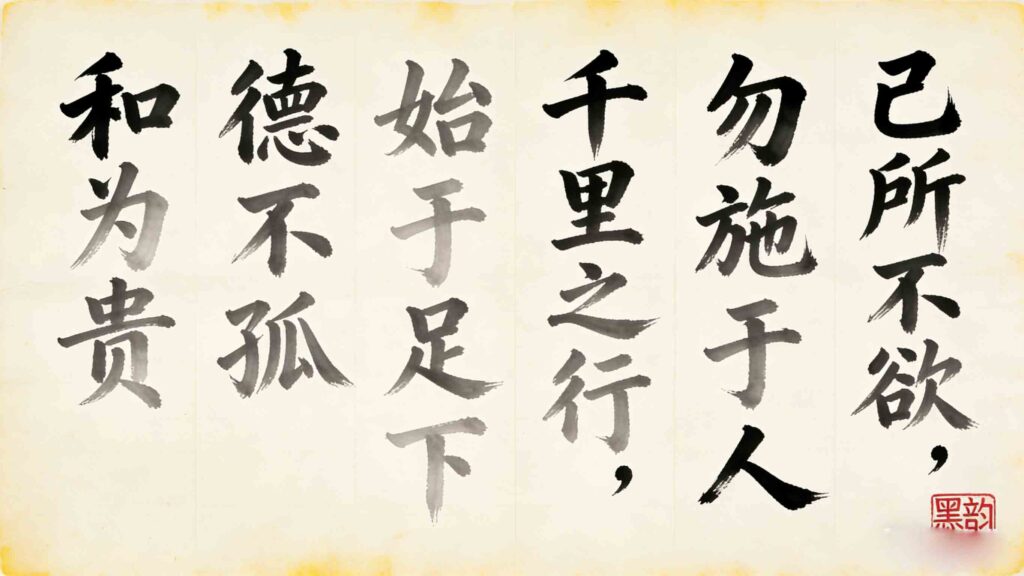 己所不欲，
勿施于人
千里之行，
始于足下
德不孤
和为贵
黑韵